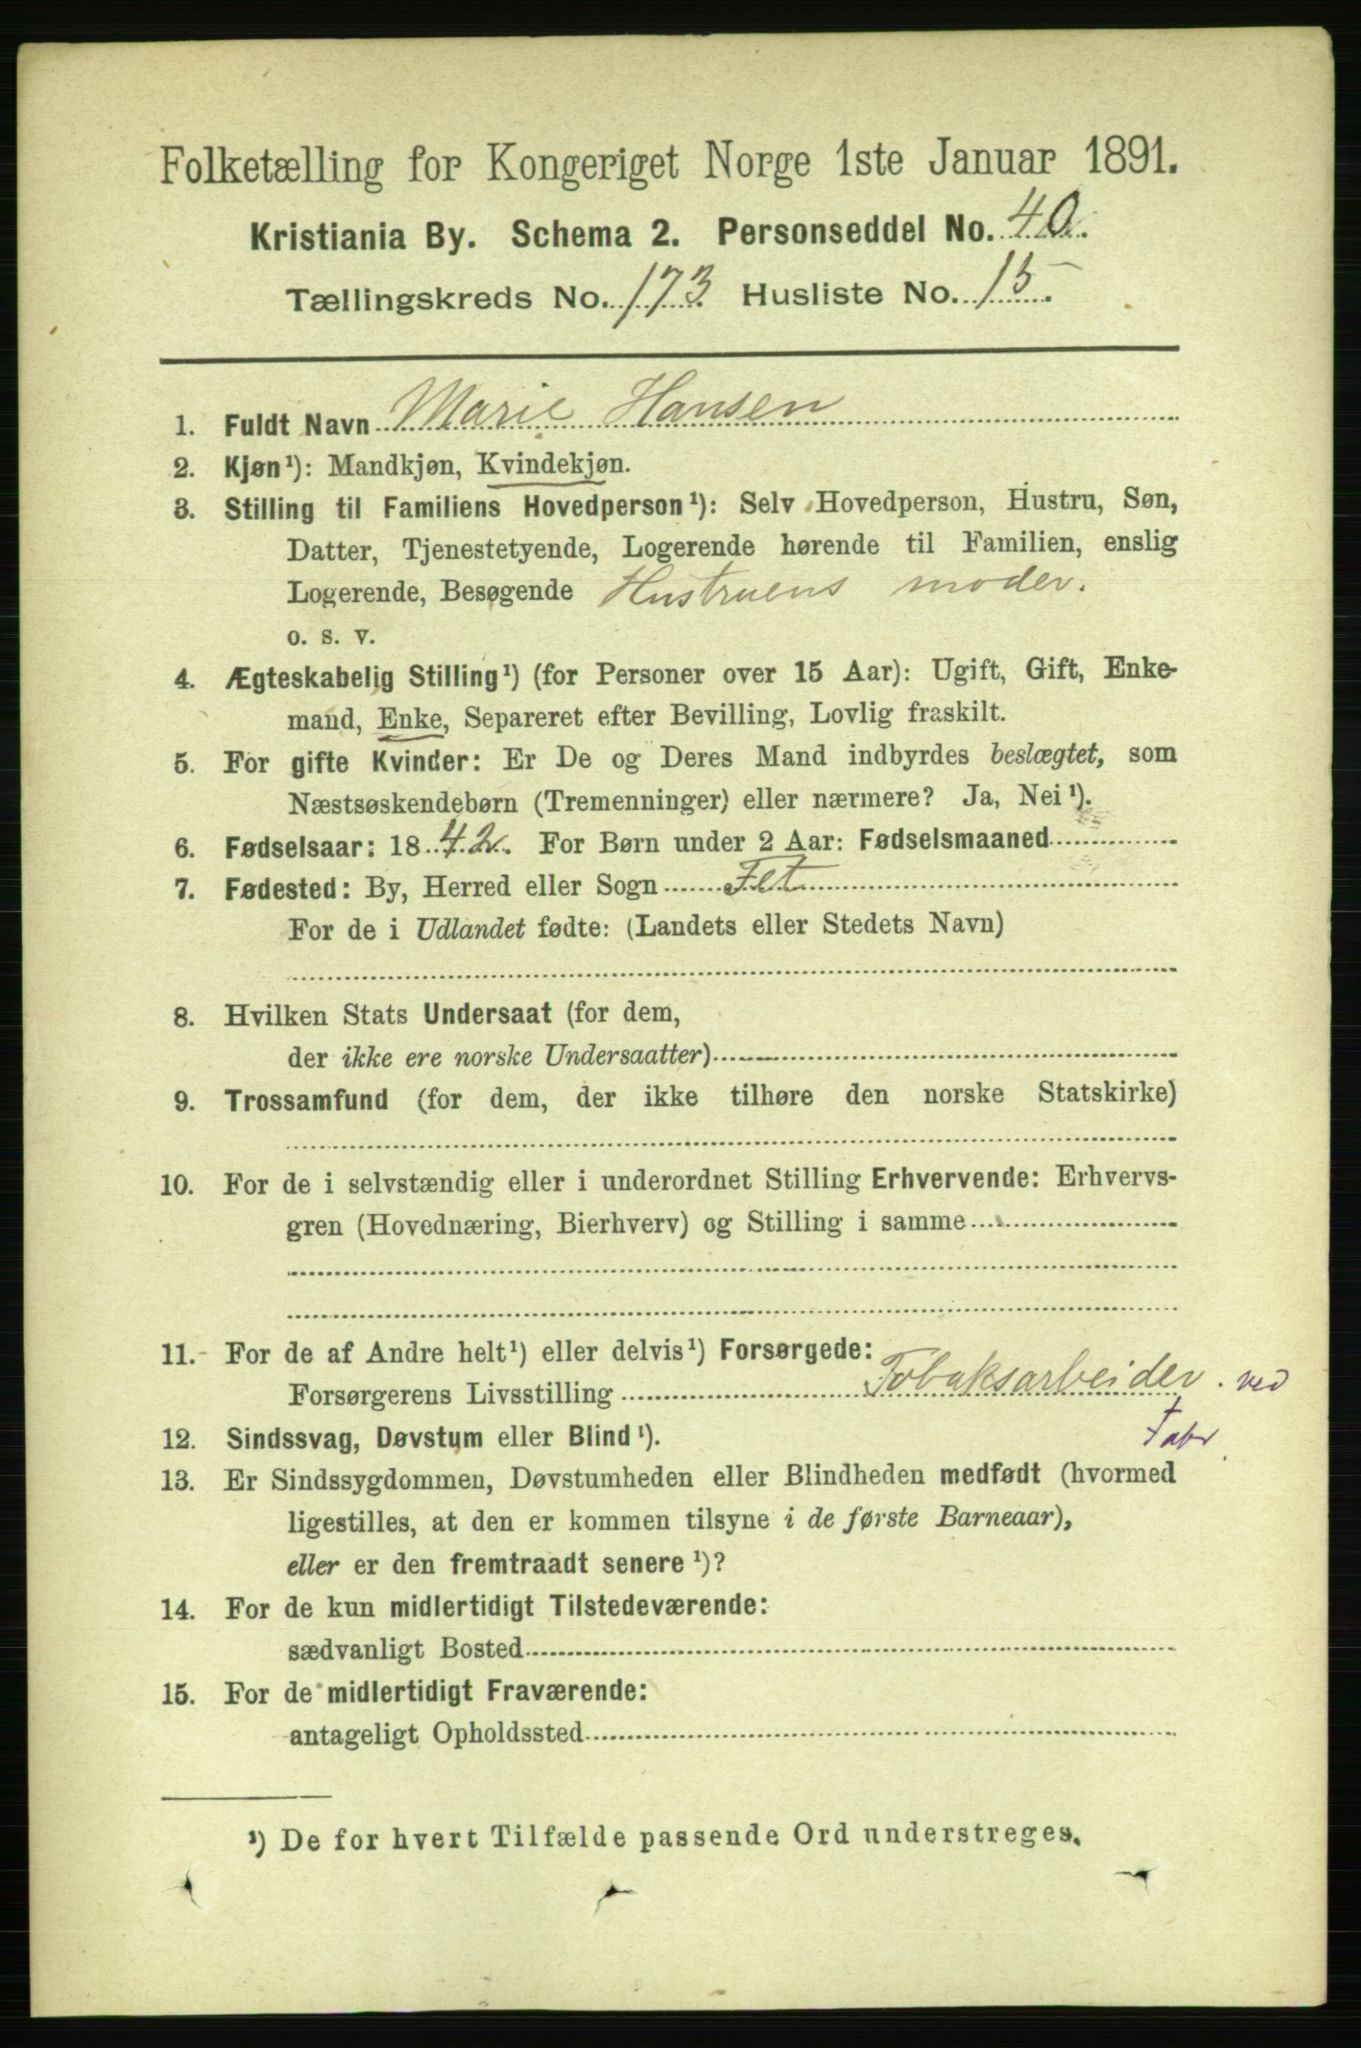 Folketælling for Kongeriget Norge 1ste Januar 1891.
Kristiania By. Schema 2. Personseddel No. 40.
Tællingskreds No. 173 Husliste No. 15.
1. Fuldt Navn Marie Hansen
2. Kjøn¹): Mandkjøn, Kvindekjøn.
3. Stilling til Familiens Hovedperson¹): Selv Hovedperson, Hustru, Søn,
Datter, Tjenestetyende, Logerende hørende til Familien, enslig
Logerende, Besøgende Hustruens moder.
o. s. v.
4. Ægteskabelig Stilling¹) (for Personer over 15 Aar): Ugift, Gift, Enke-
mand, Enke, Separeret efter Bevilling, Lovlig fraskilt.
5. For gifte Kvinder: Er De og Deres Mand indbyrdes beslægtet, som
Næstsøskendebørn (Tremenninger) eller nærmere? Ja, Nei¹).
6. Fødselsaar: 1842. For Børn under 2 Aar: Fødselsmaaned
7. Fødested: By, Herred eller Sogn Fet
For de i Udlandet fødte: (Landets eller Stedets Navn)
8. Hvilken Stats Undersaat (for dem,
der ikke ere norske Undersaatter)
9. Trossamfund (for dem, der ikke tilhøre den norske Statskirke)
10. For de i selvstændig eller i underordnet Stilling Erhvervende: Erhvervs-
gren (Hovednæring, Bierhverv) og Stilling i samme
11. For de af Andre helt¹) eller delvis¹) Forsørgede:
Forsørgerens Livsstilling Tobaksarbeider. ved
Fabr.
12. Sindssvag, Døvstum eller Blind¹).
13. Er Sindssygdommen, Døvstumheden eller Blindheden medfødt (hvormed
ligestilles, at den er kommen tilsyne i de første Barneaar),
eller er den fremtraadt senere¹)?
14. For de kun midlertidigt Tilstedeværende:
sædvanligt Bosted
15. For de midlertidigt Fraværende:
antageligt Opholdssted
¹) De for hvert Tilfælde passende Ord understreges.